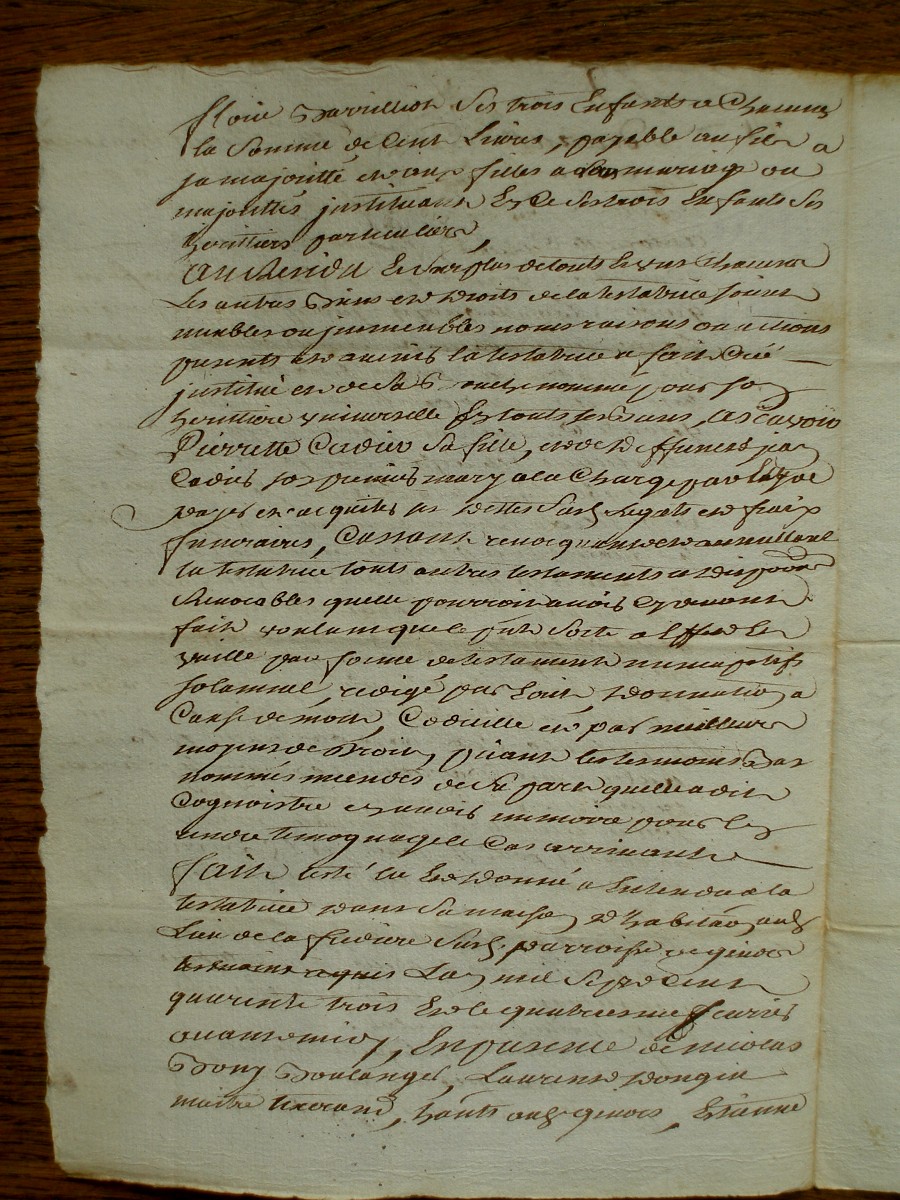 floire Darnillion ses trois enfants a Chacune
la somme de Cent Livres, payable au fils a
sa majoritté et aux filles a leur mariage ou
majorittés instituant En Ce ses trois Enfants ses
herittiers particuliers,
Au Residu Et surplus de touts Et uns Chacuns
Les autres Biens et droits de la testatrice soient
meubles ou immeubles noms raisons ou actions
presents et avenirs la testatrice a fait Créé
institué et de sa Bouche nommé pour so
herittiere universelle En touts ses Biens, asscavoir
Pierrette Cadier sa fille, et de deffunct
Cadier son premier mary a la Charge par Elle de
payer et acquiter ses dettes susd. Legats et fraix
funeraires, Cassant revocquant et annullant
la testatrice touts autres testaments et
Revocables quelle pourroit avoir Cydevant
fait voulant que le pnt sorte a Effect Et
vaille par forme de testament nuncupatifs
solamnel, redigé par Escrit donnation a
Cause de mort, Codicille et par meilleurs
moyens de Droit, priant les tesmoins Bas
nommés mendés de sa part quelle a dit
Cognoistre et avoir memoire pour En
rendre temoignage le Cas arrivant
Fait testé lu Et donné a Entendre a la
testatrice dans sa maison d'habitaon aud.
Lieu de la susd. parroisse de genos
Lan mil Sept Cent
quarente trois Et le quatriesme feuvrier
avant midy, En presence de nicolas
Bony Boulanger, Laurent dongin
maitre tixerand, habts aud. genos, Estienne